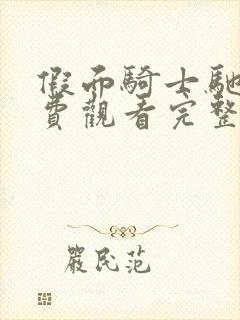 假面騎士馳
費觀看完整
嚴民范